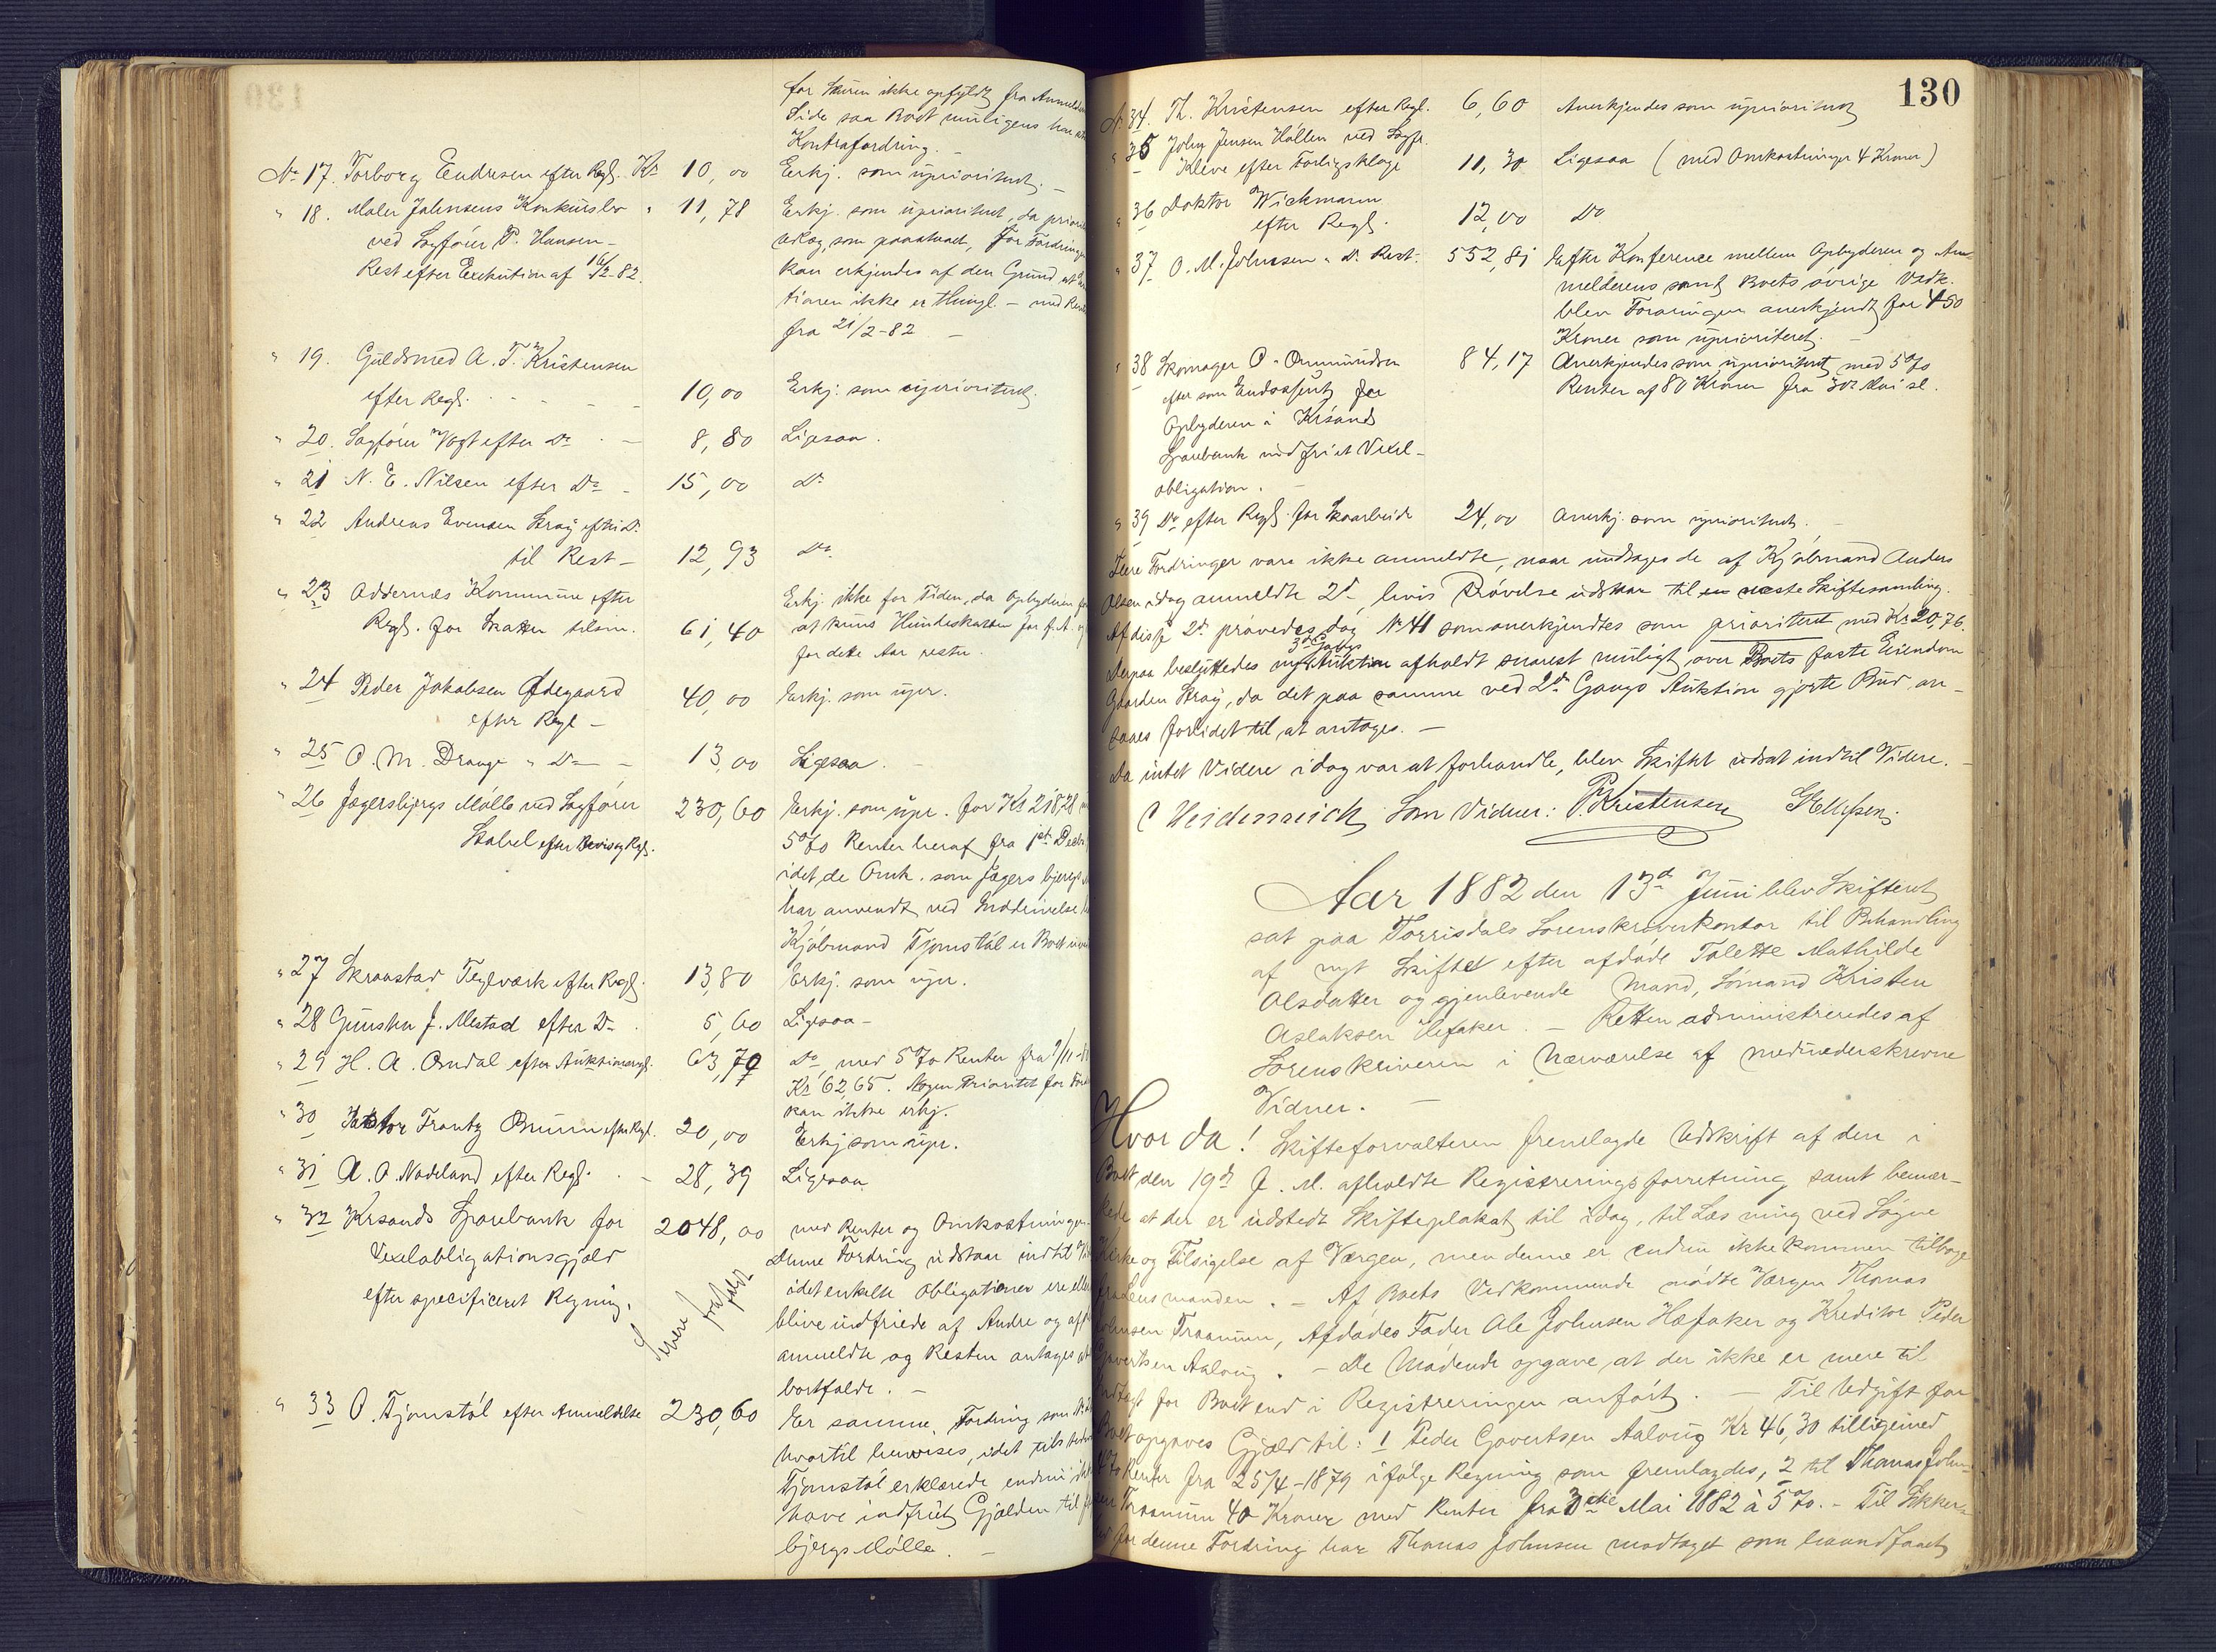 for Skuren ikke opfyldt fra Anmeld
Side saa Boet muligens har
Kontrafordring. –
No 17. Torborg Endresen efter Regl. Kr 10,00 Erkj. som uprioriteret. –
" 18. Maler Jahnsens Konkursbo " 11,78 Erkj. som uprioriteret, da priori
ved Sagfører P. Hansen – som paastaaet, for Fordringen
Rest efter Exekution af 16/2-82. kan erkjendes af den Grund, at
tionen ikke er thingl. – med Rent
fra 21/2-82 –
" 19. Guldsmed A. T. Kristensen
efter Regl. - - - - 10,00 Erkj. som uprioriteret.
" 20. Sagfører Vogt efter Do - – 8,80 Ligesaa.
" 21 N. E. Nilsen efter Do – 15,00 Do
" 22 Andreas Evensen Strai efter Do
til Rest – 12,93 Do
" 23 Oddernes Kommune efter Erkj. ikke for Tiden, da Opbyderen
Regl. for Skatter tilsm. 61,40 at kuns Hundeskatten for f. A.
for dette Aar rester.
" 24 Peder Jakobsen Ødegaard 40,00 Erkj. som upr.
efter Regl –
" 25 O. M. Drange " Do – 13,00 Ligesaa. –
" 26 Jægersbjergs Mølle ved Sagfører 230,60 Erkj. som upr. for Kr 218,28
Stabel efter Bevis og Regl. 5% Renter heraf fra 1ste Decbr
idet de Omk. som Jægersbjergs
har anvendt ved Inddrivelse
Kjøbmand Tjomstøl er Boet
" 27 Skraastad Teglværk efter Regl. 13,80 Erkj. som upr.
" 28 Gunsten J. Mestad efter Do . 5,60 Ligesaa –
" 29 H. A. Omdal efter Auktionsregl. 63,79 Do med 5% Renter fra 9/11-
Kr 62,65. Nogen Prioritet for For
kan ikke erkj.
" 30 Doktor Frantz Bruun efter Regl. 20,00 Erkj som upr.
" 31 A. O. Nodeland efter Regl. - – 28,39 Ligesaa
" 32 Krsands Sparebank for 2048,00 med Renter og Omkostninger.
Vexelobligationsgjæld Denne Fordring udstaar indtil
efter specificeret Regning. idet enkelte Obligationer ere eller
Senere frafaldt blive indfriede af Andre og
anmeldte og Resten antages at
bortfalde. –
" 33 O. Tjomstøl efter Anmeldelse 230,60 Er samme Fordring som No
hvortil henvises, idet
Tjomstøl erklærede endnu ikke
have indfriet Gjælden til
bjergs Mølle. –
130
No 34. Th. Kristensen efter Regl. 6,60 Anerkjendes som uprioriteret
" 35 John Jensen Hallen ved Sagfr.
Kleve efter Forligsklage 11,30 Ligesaa (med Omkostninger 4 Kroner)
" 36 Doktor Wichmann
efter Regl. 12,00 Do
" 37 O. M. Johnsen " Do Rest. 552,81 Efter Konference mellem Opbyderen og An-
melderens samt Boets øvrige Vedk.
blev Fordringen anerkjendt for 450
Kroner som uprioriteret. –
" 38 Skomager O. Ommundsen 84,17 Anerkjendes som uprioriteret med 5%
efter som Endossent for Renter af 80 Kroner fra Mai sl.
Opbyderen i Krsands
Sparebank indfriet Vexel-
obligation. –
" 39 Do efter Regl. for Skoarbeide 24,00 Anerkj. som uprioriteret. –
Flere Fordringer vare ikke anmeldte, naar undtages de af Kjøbmand Anders
Olsen idag anmeldte 2de hvis Prøvelse udstaar til næste Skiftesamling.
Af disse 2de prøvedes dog No 41 som anerkjendtes som prioriteret med Kr. 20,76.
3die Gangs
Derpaa besluttedes Auktion afholdt snarest muligt over Boets faste Eiendom
Gaarden Strai, da det paa samme ved 2den Gangs Auktion gjorte Bud, an-
saaes forlidet til at antages. –
Da intet Videre idag var at forhandle, blev Skiftet udsat indtil Videre. –
C Heidenreich Som Vidner: P. Kristensen
Aar 1882 den 13de Juni blev Skifteret
sat paa Torrisdals Sorenskriverkontor til Behandling
af nyt Skifte efter afdøde Talette Mathilde
Olsdatter og gjenlevende Mand, Sømand Kristen
Aslaksen Hefaker. – Retten administreredes af
Sorenskriveren i Nærværelse af medunderskrevne
Vidner. –
Hvor da! Skifteforvalteren fremlagde Udskrift af den i
Boet den 19de f. M. afholdte Registreringsforretning samt bemær-
kede at der er udstedt Skifteplakat til idag, til Læsning ved Søgne
Kirke og Tilsigelse af Værgen, men denne er endnu ikke kommen tilbage
fra Lensmanden. – Af Boets Vedkommende mødte Værgen Thomas
Johnsen Traanum, Afdødes Fader Ole Johnsen Hæfaker og Kreditor Peder
Govertsen Aaloug. – De Mødende opgave, at der ikke er mere til
Indtægt for Boet end i Registreringen anført. – Til Udgift for
Boet opgaves Gjæld til: 1 Peder Govertsen Aaloug Kr 46,30 tilligemed
Renter fra 25/4-1879 ifølge Regning som fremlagdes, 2 til Thomas John-
sen Traanum 40 Kroner med Renter fra 3die Mai 1882 à 5%. – Til Sikker-
hed for denne Fordring har Thomas Johnsen modtaget som haandfaaet